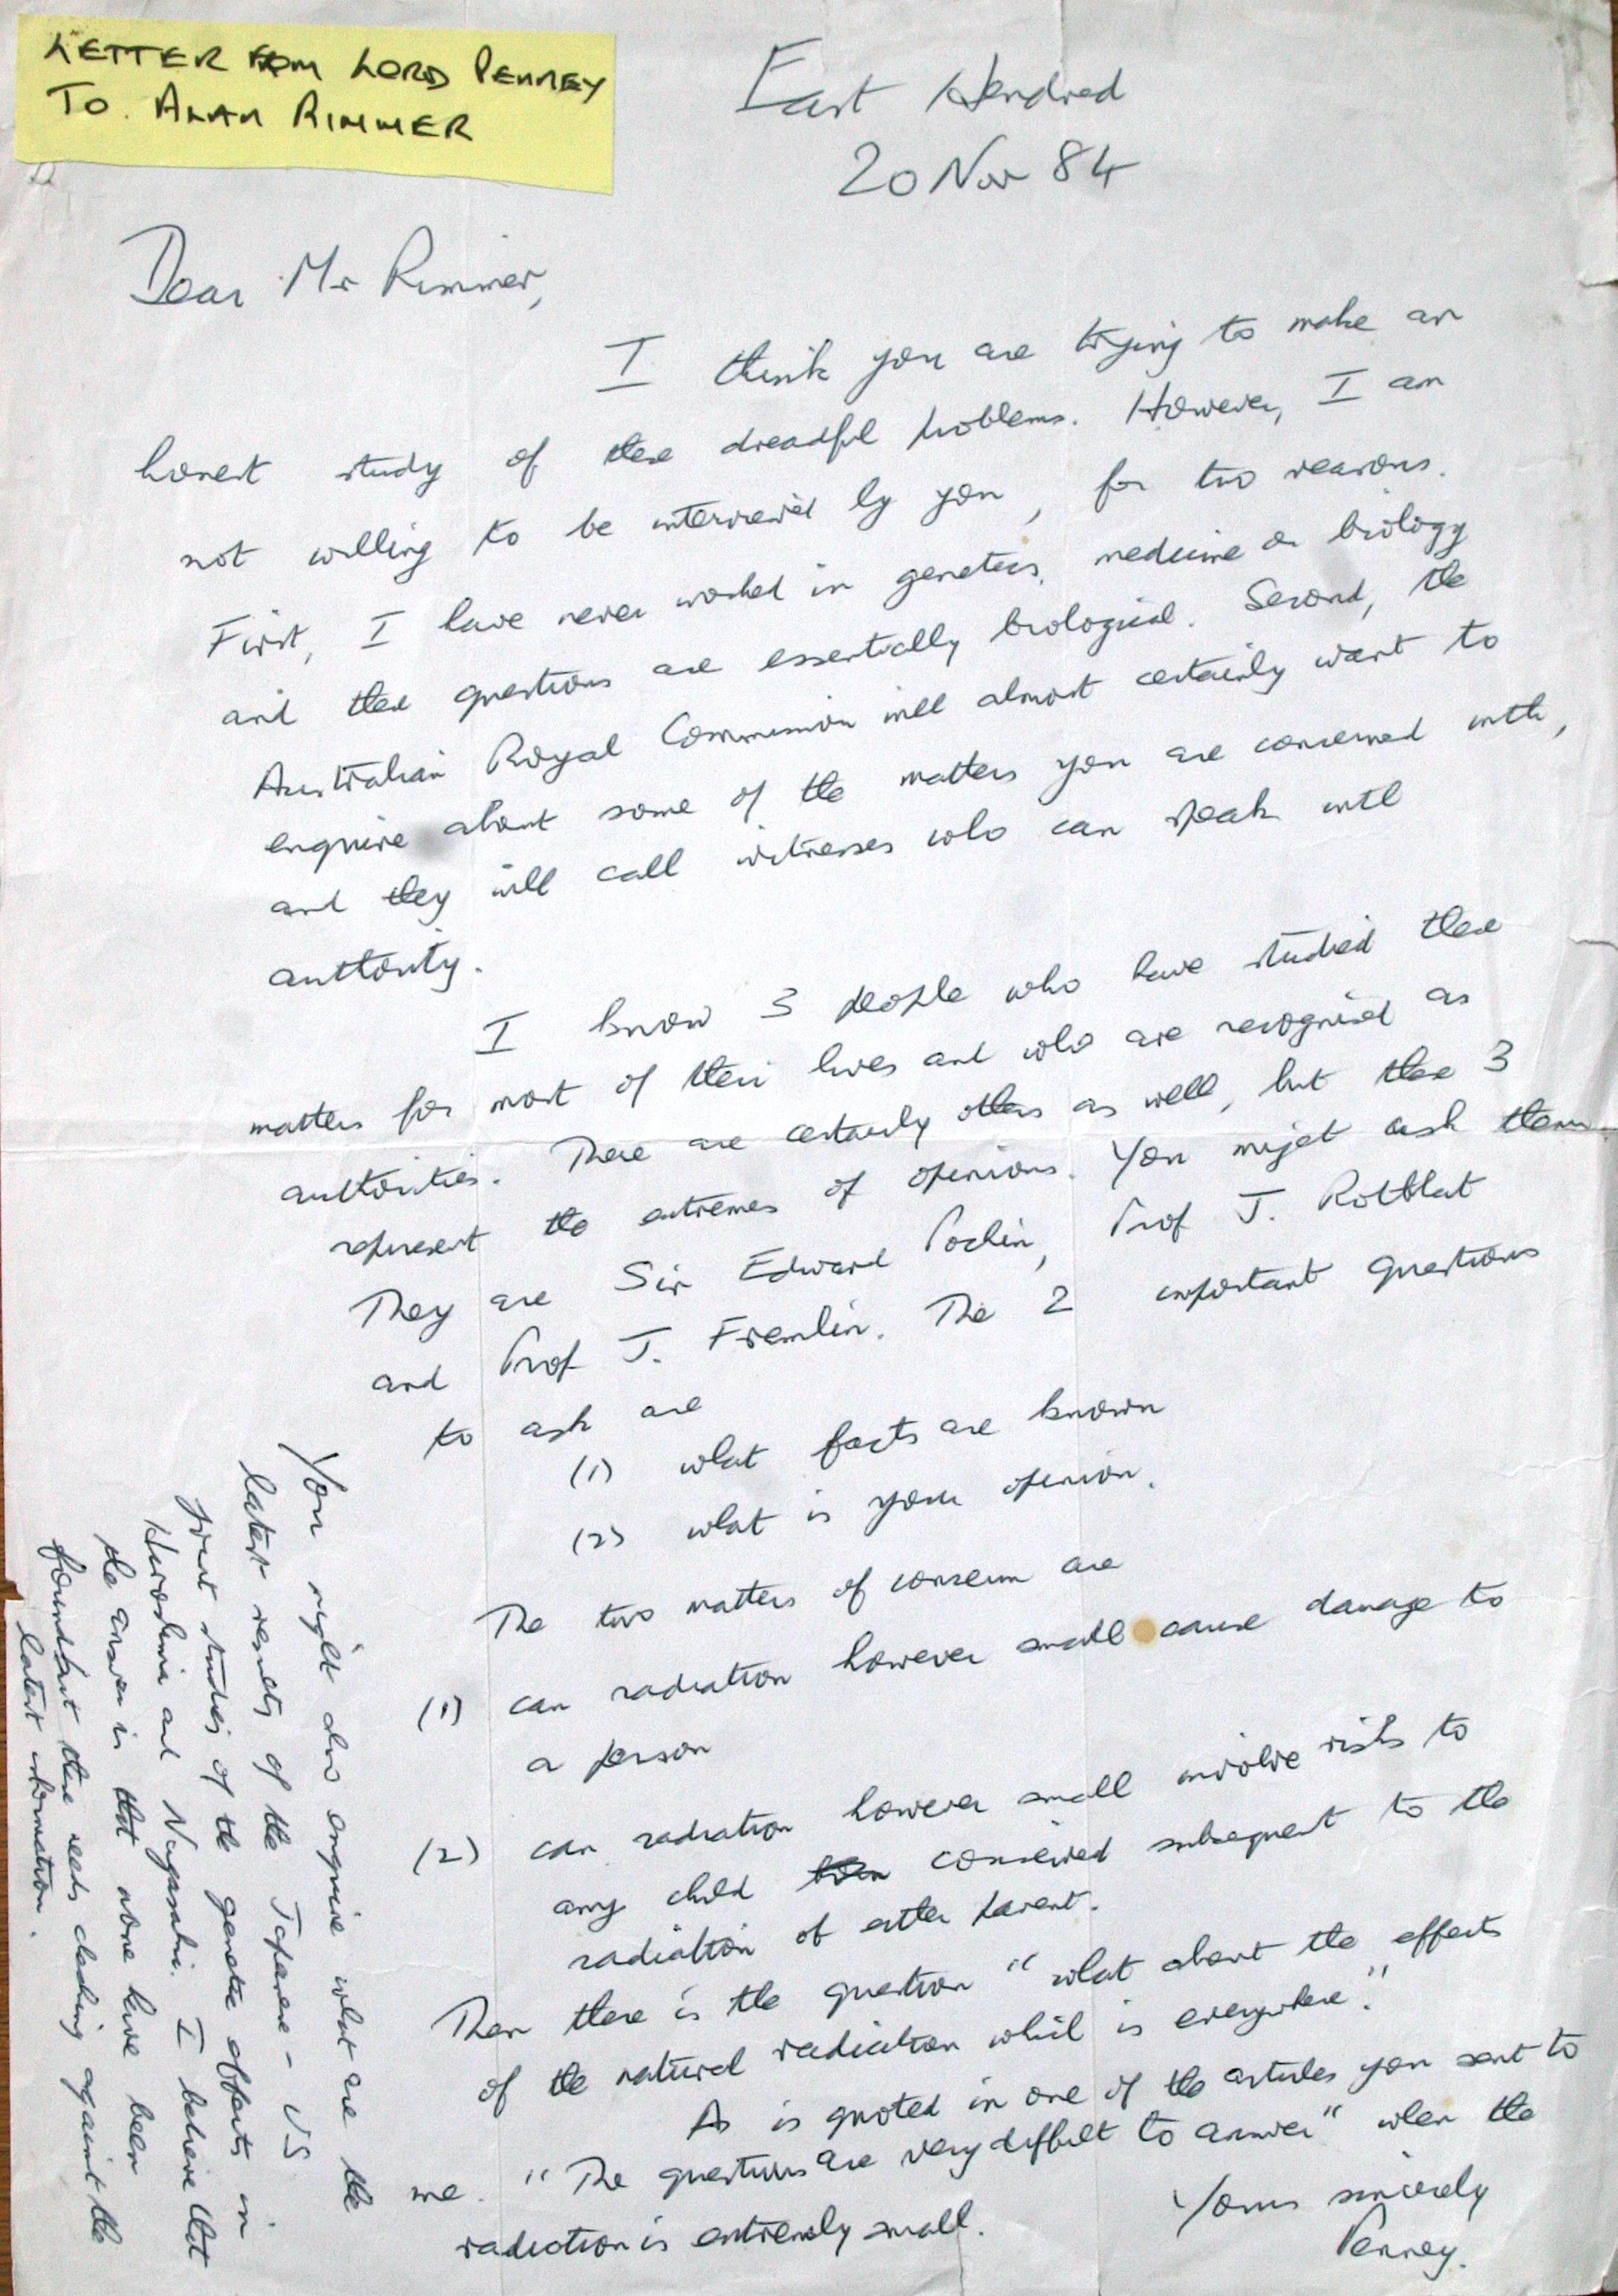 LETTER FROM LORD PENNEY
TO. ALAN RIMMER
East Hendred
20 Nov 84
Dear Mr Rimmer,
I think you are trying to make an
honest study of these dreadful problems. However, I am
not willing to be interviewed by you, for two reasons.
First, I have never worked in genetics, medicine or biology
and these questions are essentially biological. Second, the
Australian Royal Commission will almost certainly want to
enquire about some of the matters you are concerned with,
and they will call witnesses who can speak with
authority.
I know 3 people who have studied these
matters for most of their lives and who are recognised as
authorities. There are certainly others as well, but these 3
represent the extremes of opinions. You might ask them
They are Sir Edward Pochin, Prof J. Rotblat
and Prof J. Fremlin. The 2 important questions
to ask are
(1) what facts are known
(2) what is your opinion.
The two matters of concern are
(1) can radiation however small cause damage to
a person
(2) can radiation however small involve risks to
any child born conceived subsequent to the
radiation of either parent.
Then there is the question "what about the effects
of the natural radiation which is everywhere."
As is quoted in one of the articles you sent to
me. "The questions are very difficult to answer" when the
radiation is extremely small.
Yours sincerely
Penney.
You might also enquire what are the
latest results of the Japanese - US
joint studies of the genetic effects in
Hiroshima and Nagasaki. I believe that
the answer is that none have been
found but this needs checking against the
latest information.